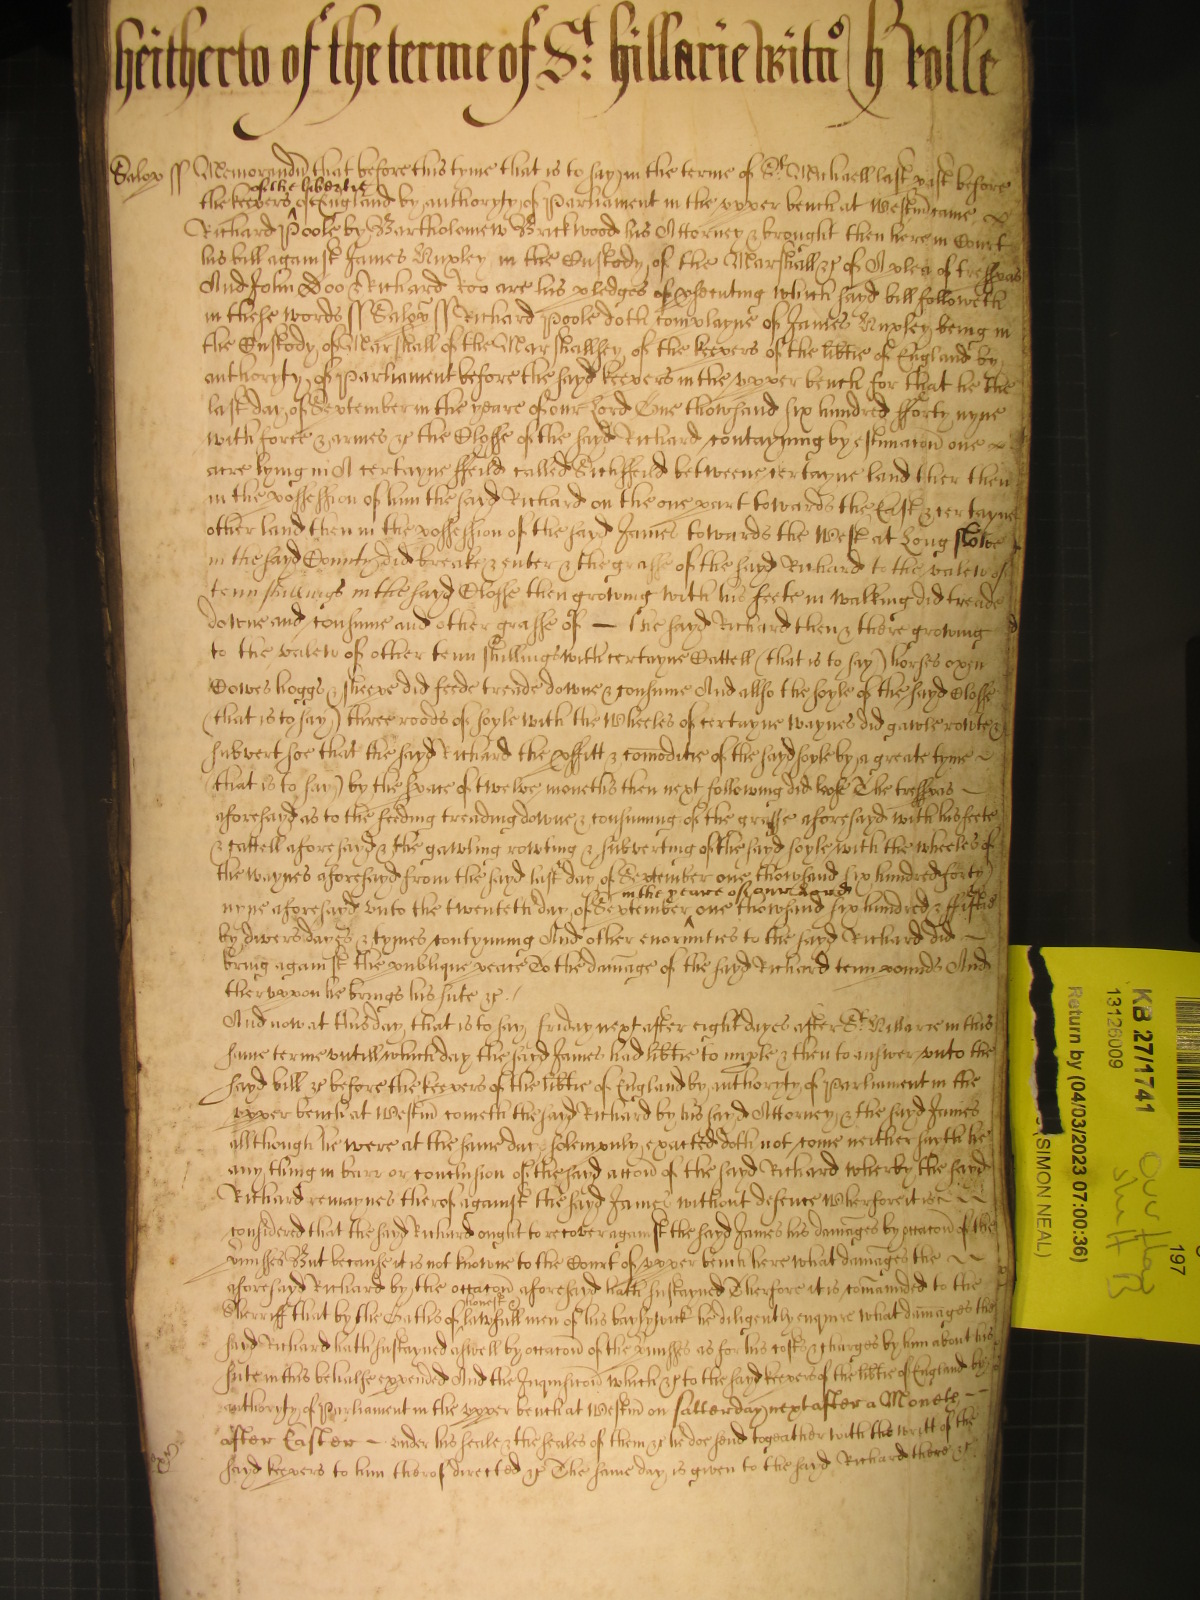 heitherto of the terme of St: hillarie witn h rolle
Salop ss Memorandu that before this tyme that is to say in the terme of St Michaell last past before
of the libertie
the keepers ^ of England by authoryty of Parliament in the upper bench at Westm came
Richard Poole by Bartholomew Brickwood his Attorney & brought then here in Court
his bill against James Nuxley in the Custody of the Marshall &c of A plea of tresspas
And John Doo & Richard Roo are his pledges of psecuting which sayd bill followeth
in these words ss Salop ss Richard Poole doth complayne of James Nuxley being in
the Custody of Marshall of the Marshallsey of the keepers of the libtie of England by
authoryty of Parliament before the sayd keepers in the upper bench for that he the
last day of September in the yeare of our Lord One thowsand six hundred fforty nyne
with force & armes &c the Closse of the sayd Richard contayning by estimacon one
acre lying in A certayne ffeild called betweene certayne land ther then
in the possession of him the sayd Richard on the one part towards the East & certayne
other land then in the possession of the sayd James towards the West at Long slowe
in the sayd County did breake & enter & the grasse of the sayd Richard to the valew of
tenn shillings in the sayd Closse then growing with his feete in walking did treade
downe and consume and other grasse of — the sayd Richard then & there growing
to the valew of other tenn shillings with certayne Cattell (that is to say) horses oxen
Cowes hoggs & sheepe did feede treade downe & consume And allso the soyle of the sayd Closse
(that is to say) three roods of soyle with the wheeles of certayne waynes did gawle rowte &
subvert soe that the sayd Richard the pffitt & comoditie of the sayd soyle by a greate tyme
(that is to say) by the space of twelve moneths then next following did lose The tresspas
aforesayd as to the feeding treading downe & consuming of the grasse aforesayd with his feete
& cattell aforesayd & the gawling rowting & subverting of the sayd soyle with the wheeles of
the waynes aforesayd from the sayd last day of September one thowsand six hundred forty
in the yeare of our Lord
nyne aforesayd unto the twenteth day of September ^ one thowsand six hundred & fiftie
by divers dayes & tymes contynuing And other enormities to the sayd Richard did
bring against the publique peace To the damage of the sayd Richard tenn pounds And
theruppon he brings his sute &c./
And now at this day that is to say Friday next after eight dayes after St Hillarie in this
same terme untill which day the sayd James had libtie to imple & then to answer unto the
sayd bill &c before the keepers of the libtie of England by authoryty of Parliament in the
upper bench at Westm cometh the sayd Richard by his sayd Attorney & the sayd James
allthough he were at the same day solempnly exacted doth not come neither sayth he
any thing in barr or conclusion of the sayd accon of the sayd Richard wherby the sayd
Richard remaynes therof against the sayd James without defence Wherfore it is
considered that the sayd Richard ought to recover against the sayd James his damages by occacon of the
pmisses But because it is not knowne to the Court of upper bench here what damages the
aforesayd Richard by the occacon aforesayd hath sustayned Therfore it is comanded to the
honest &
Sherriff that by the Oaths of lawfull men of his baylywick he diligently enquire what damages the
sayd Richard hath sustayned aswell by occacon of the pmisses as for his costs & charges by him about his
sute in this behalfe expended And the Inquisicon which &c to the sayd keepers of the libtie of England by
authoryty of Parliament in the upper bench at Westm on satterday next after a Moneth
after Easter — under his seale & the seales of them &c he doe send togeather with the writt of the
sayd keepers to him therof directed &c The same day is given to the sayd Richard there &c
KB 27/1741
13126009
Return by (04/03/2023 07:00:36)
(SIMON NEAL)
197